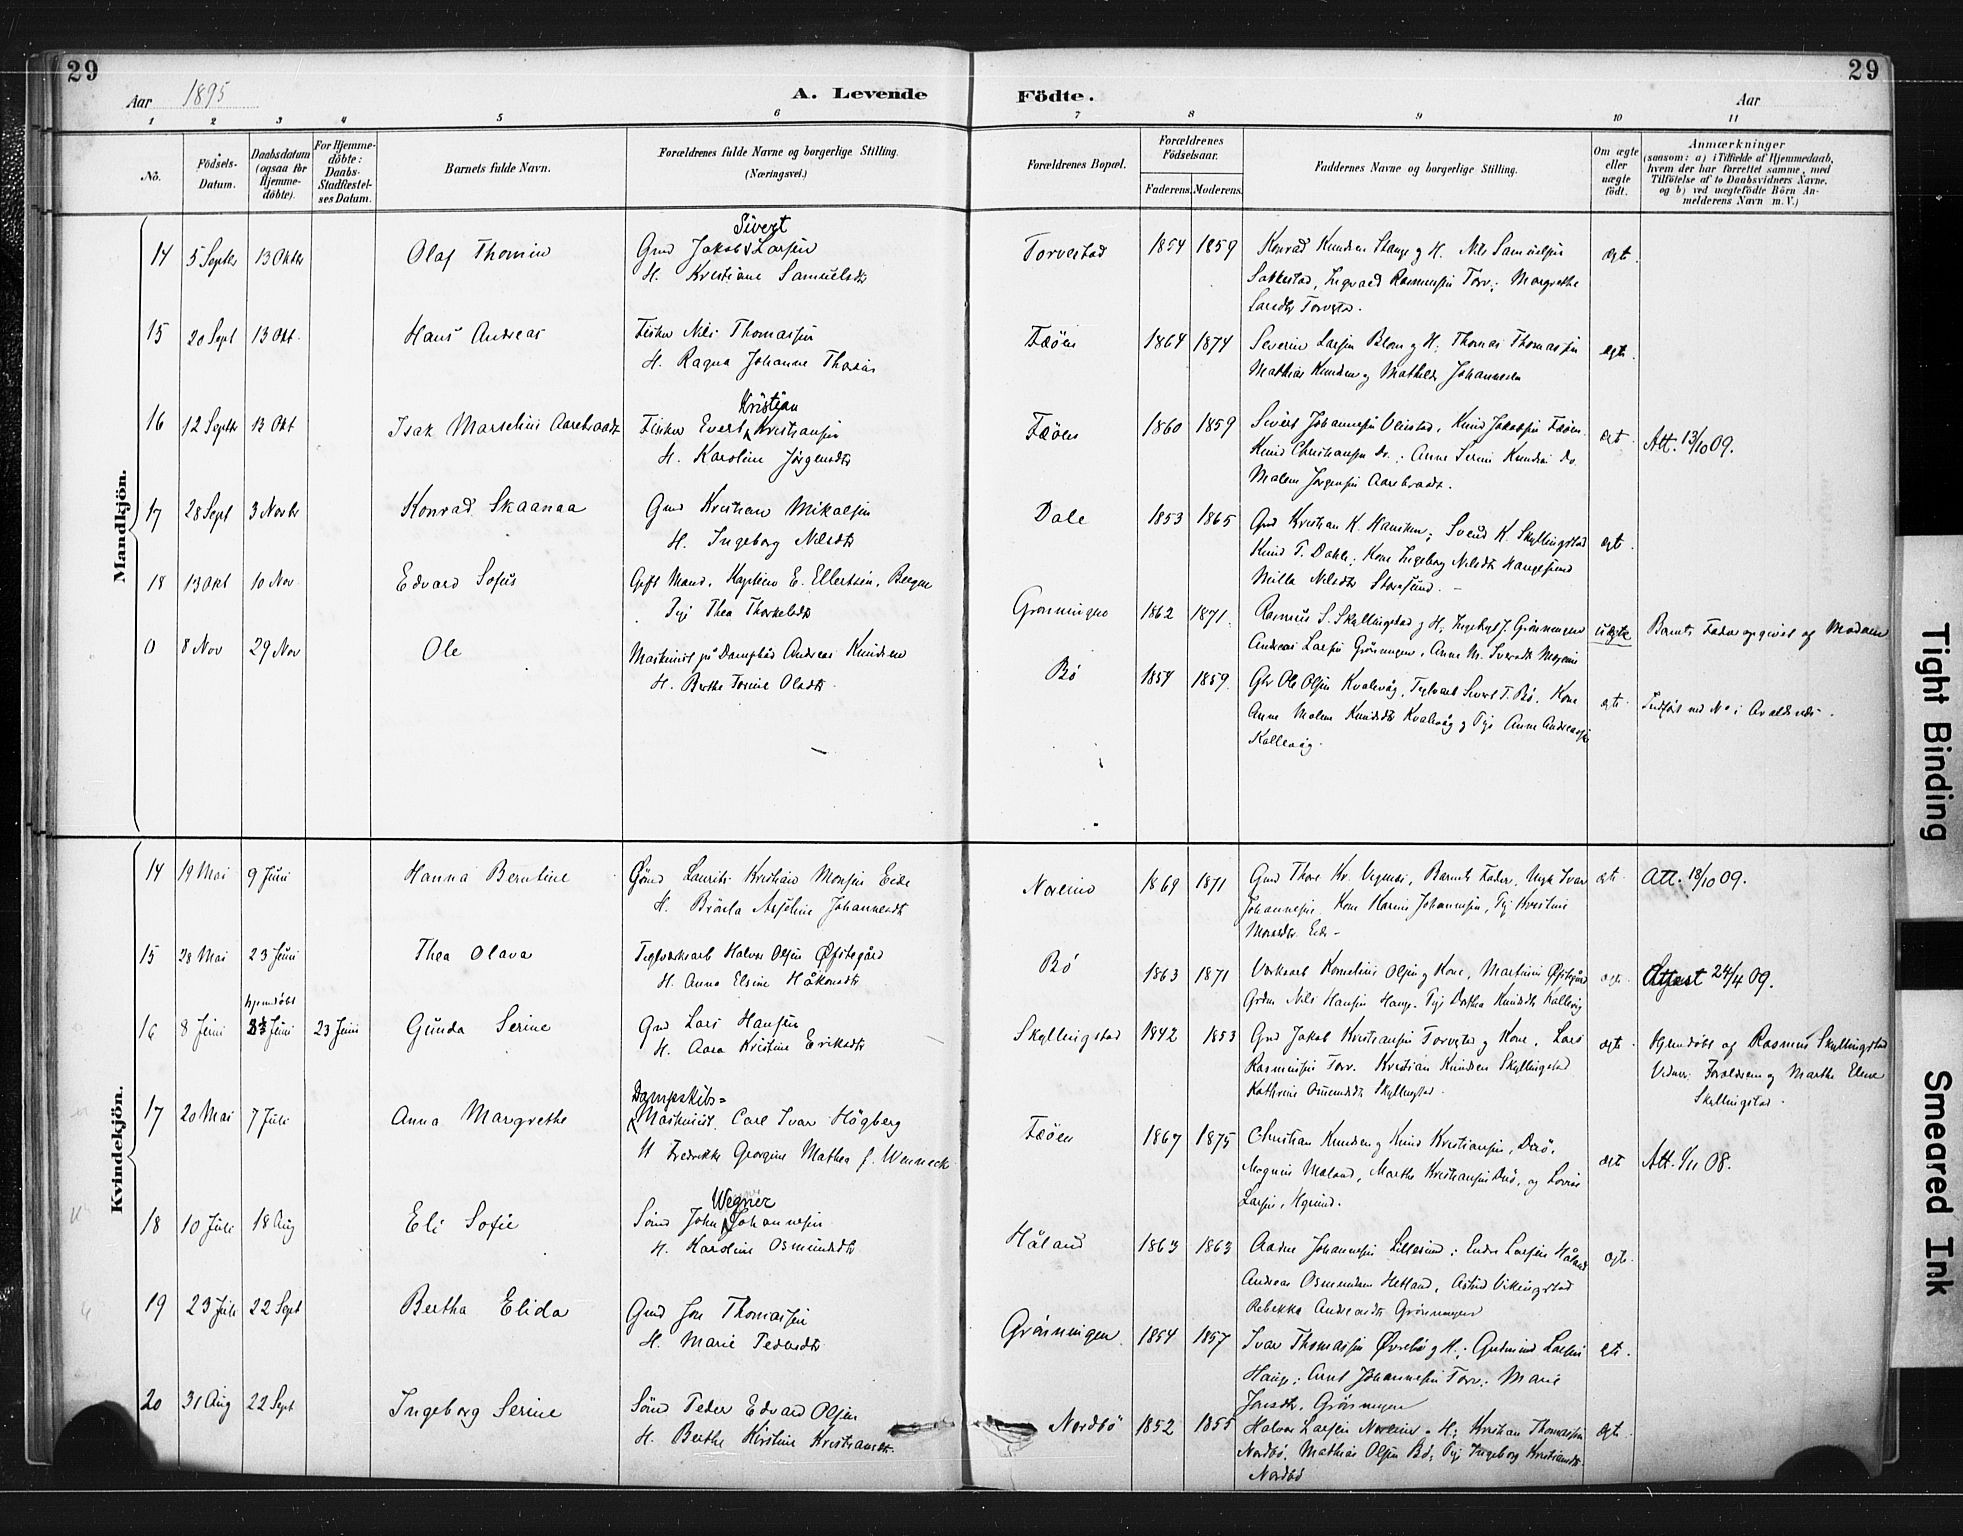 29
29
Aar 1895
A. Levende Födte.
Aar
1 2 3 4 5 6 7 8 9 10 11
No.
Födsels-Datum.
Daabsdatum (ogsaa for Hjemme-döbte).
For Hjemme-döbte: Daabs-Stadfæstel-ses Datum.
Barnets fulde Navn.
Forældrenes fulde Navne og borgerlige Stilling.
(Næringsvei.)
Forældrenes Bopæl.
Forældrenes Födselsaar.
Faderens. Moderens.
Faddernes Navne og borgerlige Stilling.
Om ægte eller uægte födt.
Anmærkninger
(saasom: a) i Tilfælde af Hjemmedaab,
hvem der har forrettet samme, med
Tilföielse af to Daabsvidners Navne,
og b) ved uægtefödte Börn An-
melderens Navn m. V.)
Mandkjön.
14 5 Septbr 13 Oktbr Olaf Thomin
Sivert
Gmd Jakob Larsen
H. Kristiane Samuelsdtr
Torvestad 1854 1859
Konrad Knudsen Stange g H. Nils Samuelsen
Sakkestad, Ingvald Rasmussen Torv; Margrethe
Larsdtr Torvesta.
ægt.
15 20 Sept 13 Okt. Hans Andreas
Fisker Nils Thomassen
H. Ragna Johanne
Fæöen 1864 1874
Severin Larsen Blom g H; Thomas Thomassen
Mathias Knudsen g Mathilde Johannesen
ægte.
16 12 Septbr 13 Okt Isak Marselius Aarebraadt
Kristian
Fisker Evert Kristiansen
H. Karoline Jörgensdtr
Fæöen 1860 1859
Sivert Johannesen Visnestad, Knud Jakobsen Fæöen
Knud Christiansen Do.; Anne Serine Knudsen do.
Malene Jörgensen Aarebraadt.
ægt. Att. 13/10 09.
17 28 Sept 3 Novbr Konrad Skaanaa
Gmd Kristian Mikalsen
H. Ingeborg Nilsdtr
Dale 1853 1865
Gmd Kristian K. Hansken; Svend K. Skyllingstad
Knud T. Dahle; Kone Ingeborg Nilsdtr Haugesund
Milla Nilsdtr Storesund.
ægt.
18 13 Okt 10 Nov Edvard Sofus
Gift Mand, Kaptein E. Ellertsen, Bergen
Pige Thea Thorkelsdtr
Grönningen 1862 1871
Rasmus S. Skyllingstad g H; J. Grönningen
Andreas Larsen Grönningen, Anne M.
uægte Barnets Fader opgivet af Moderen
0 8 Nov 29 Nov Ole
Maskinist på Dampbåd Andreas Knudsen
H. Berthe Torine Olsdtr.
Bö 1854 1859.
Gbr Ole Olsen Kvalevåg, Sivert T. Bö. Kone
Anne Malene Knudsdtr Kvalevåg g Pige Anne Andreassen
Kallevåg.
ægte. Indfört ved No i Avaldsnes.
Kvindekjön.
14 19 Mai 9 Juni Hanna Berntine
Gmd Laurits Kristian Monsen Eide
H. Bröila Asseline Johannesdtr
Norheim 1869 1871
Gmd Thore Kr. Vegnes, Barnets Fader, Ungk Ivar
Johannesen, Kone Karine Johannesen, Pig Kristine
Monsdtr Eide
ægt. Att. 18/10 09.
15 28 Mai 23 Juni Thea Olava
Teglværksarb Halvor Olsen Øfstegård
H. Anna Elsine Håkonsdtr
Bö 1863 1871
Værksarb Kornelius Olsen g Kone, Martinus Øfstegård
Grdm Nils Hansen Hauge. Pige Dorthea Knudsdtr Kallevig
ægt. Attest 24/4 09.
hjemdöbt
16 8 Juni 8 Juni 23 Juni Gunda Serine
Gmd Lars Hansen
H. Aasa Kristine Eriksdtr
Skyllingstad 1842 1853
Gmd Jakob Kristiansen Torvestad g Kone, Lars
Rasmussen Torv. Kristian Knudsen Skyllingstad
Kathrine Omundsdtr Skyllingstad.
ægt. Hjemdöbt af Rasmus Skyllingstad
Vidner: Forældrene g Marthe Elene
Skyllingstad.
17 20 Mai 7 Juli Anna Margrethe
Dampskibs=
Maskinist. Carl Ivar Högberg
H Fredrikke Georgine Mathea f. Wenneck
Fæöen 1867 1875
Christian Knudsen g Knud Kristiansen, Dersö,
Magnus Maland, Marthe Kristiansen Dersö, og Lovise
Larsen, Hgsund.
ægt Att. 6/11 08.
18 10 Juli 18 Aug Eli Sofie
Wegner
Smd John Johannesen
H. Karoline Osmundsdtr
Håland 1863 1863
Aadne Johannesen Lillesund; Endre Larsen Håland
Andreas Osmundsen Hetland, Astrid Vikingstad
Rebekka Andreasdtr Grönningen
ægte.
19 23 Juli 22 Sept Bertha Elida
Gmd Jon Thomassen
H. Marie Pedersdtr
Grönningen. 1854 1857
Ivar Thomassen Øvrebö g H.; Gudmund Larsen
Hauge; Arnt Johannesen Torv; Marie
Jonsdtr, Grönningen
ægte.
20 31 Aug 22 Sept Ingeborg Serine
Smd Peder Edvard Olsen
H. Berthe Kirstine Kristiansdtr.
Nordbö 1852 1855
Halvor Larsen Norheim g H; Kristian Thomassen
Nordbö, Mathias Olsen Bö; Pige Ingeborg Kristiansdtr.
Nordbö
ægt.
Tight Binding
Smeared Ink